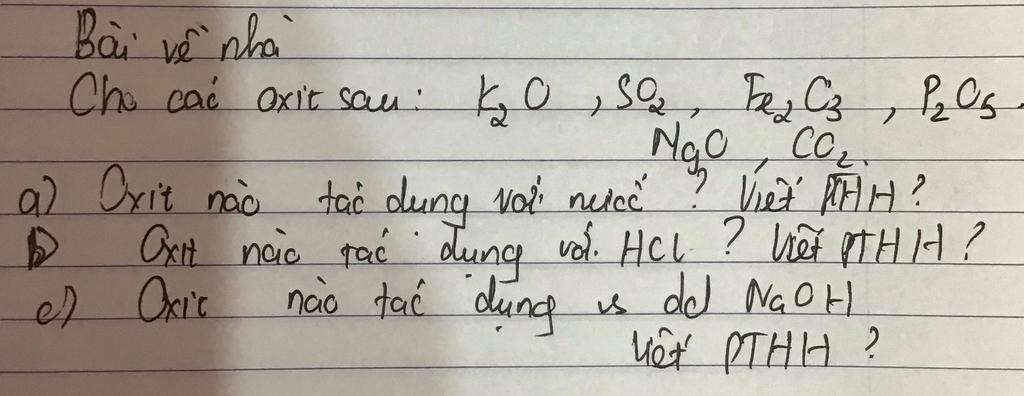 Bài về nhà
Cho các oxit sau: K₂O, SO₂, Fe₂O₃, P₂O₅.
MgO, CO₂.
a) Oxit nào tác dụng với nước? Viết PTHH?
b) Oxit nào tác dụng với HCl? Viết PTHH?
c) Oxit nào tác dụng vs dd NaOH
Viết PTHH?